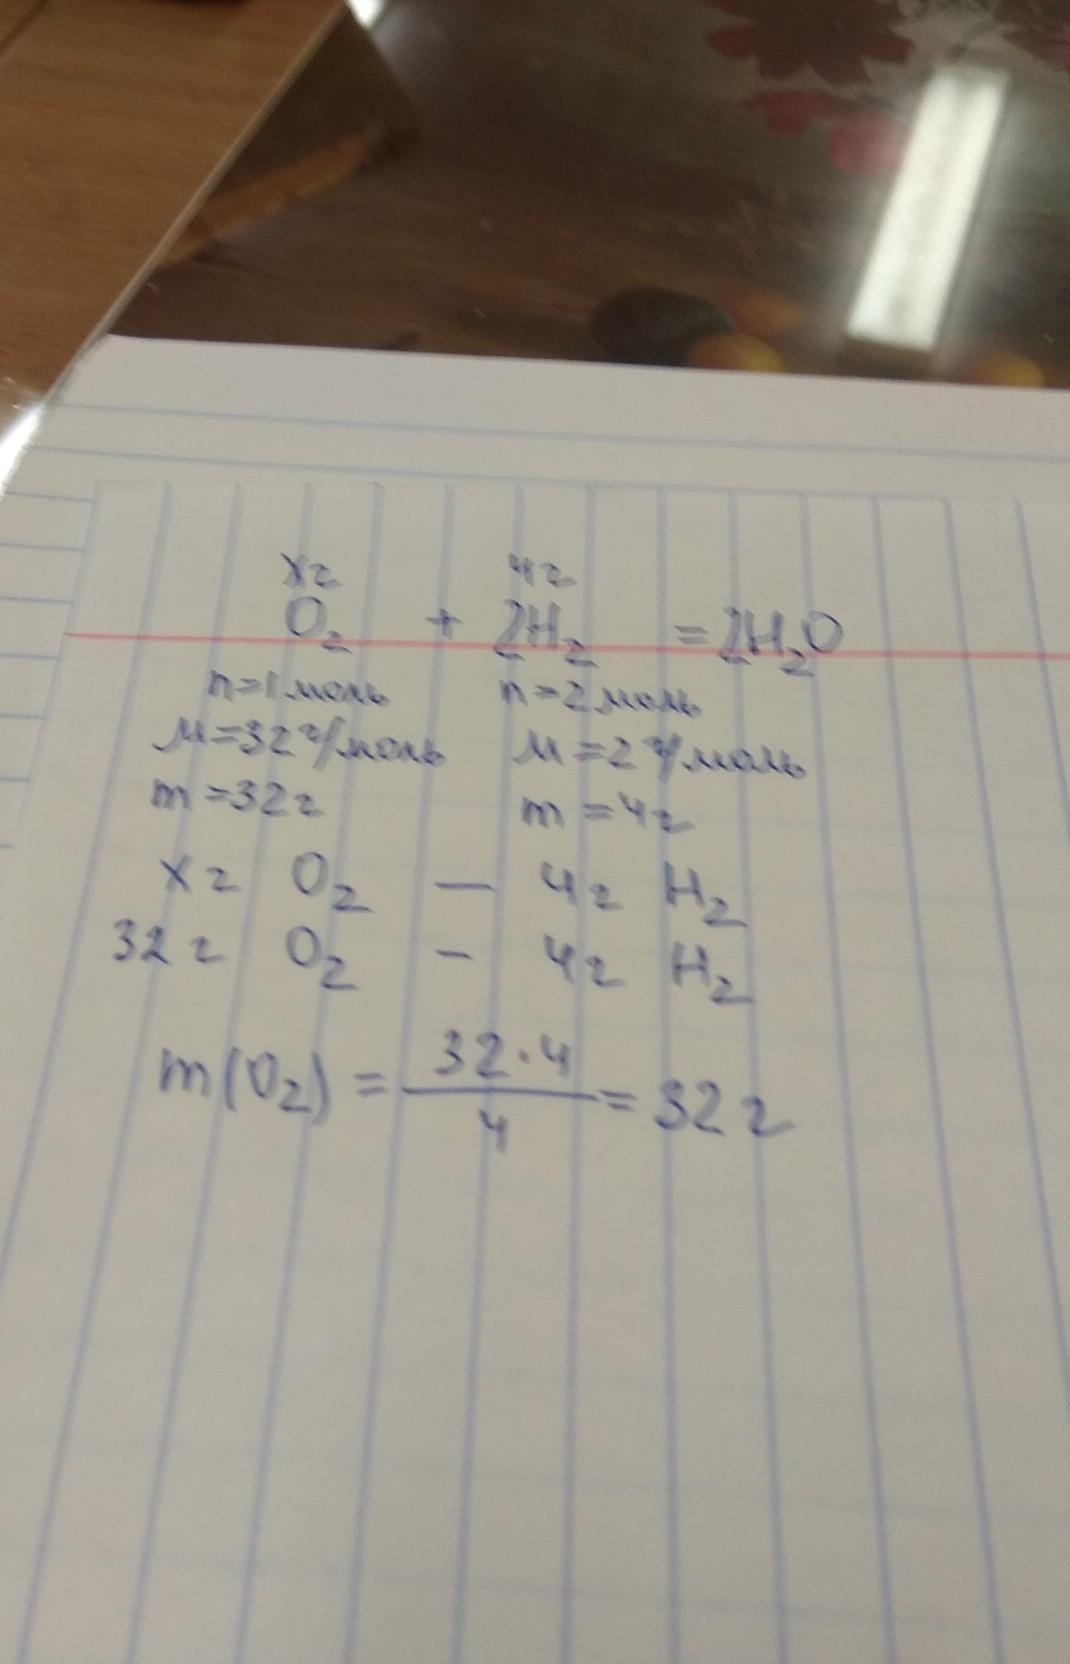 xг 4г
O₂ + 2H₂ = 2H₂O
n=1моль n=2моль
M=32г/моль M=2г/моль
m=32г m=4г
xг O₂ — 4г H₂
32г O₂ - 4г H₂
m(O₂) = 32·4/4 = 32г